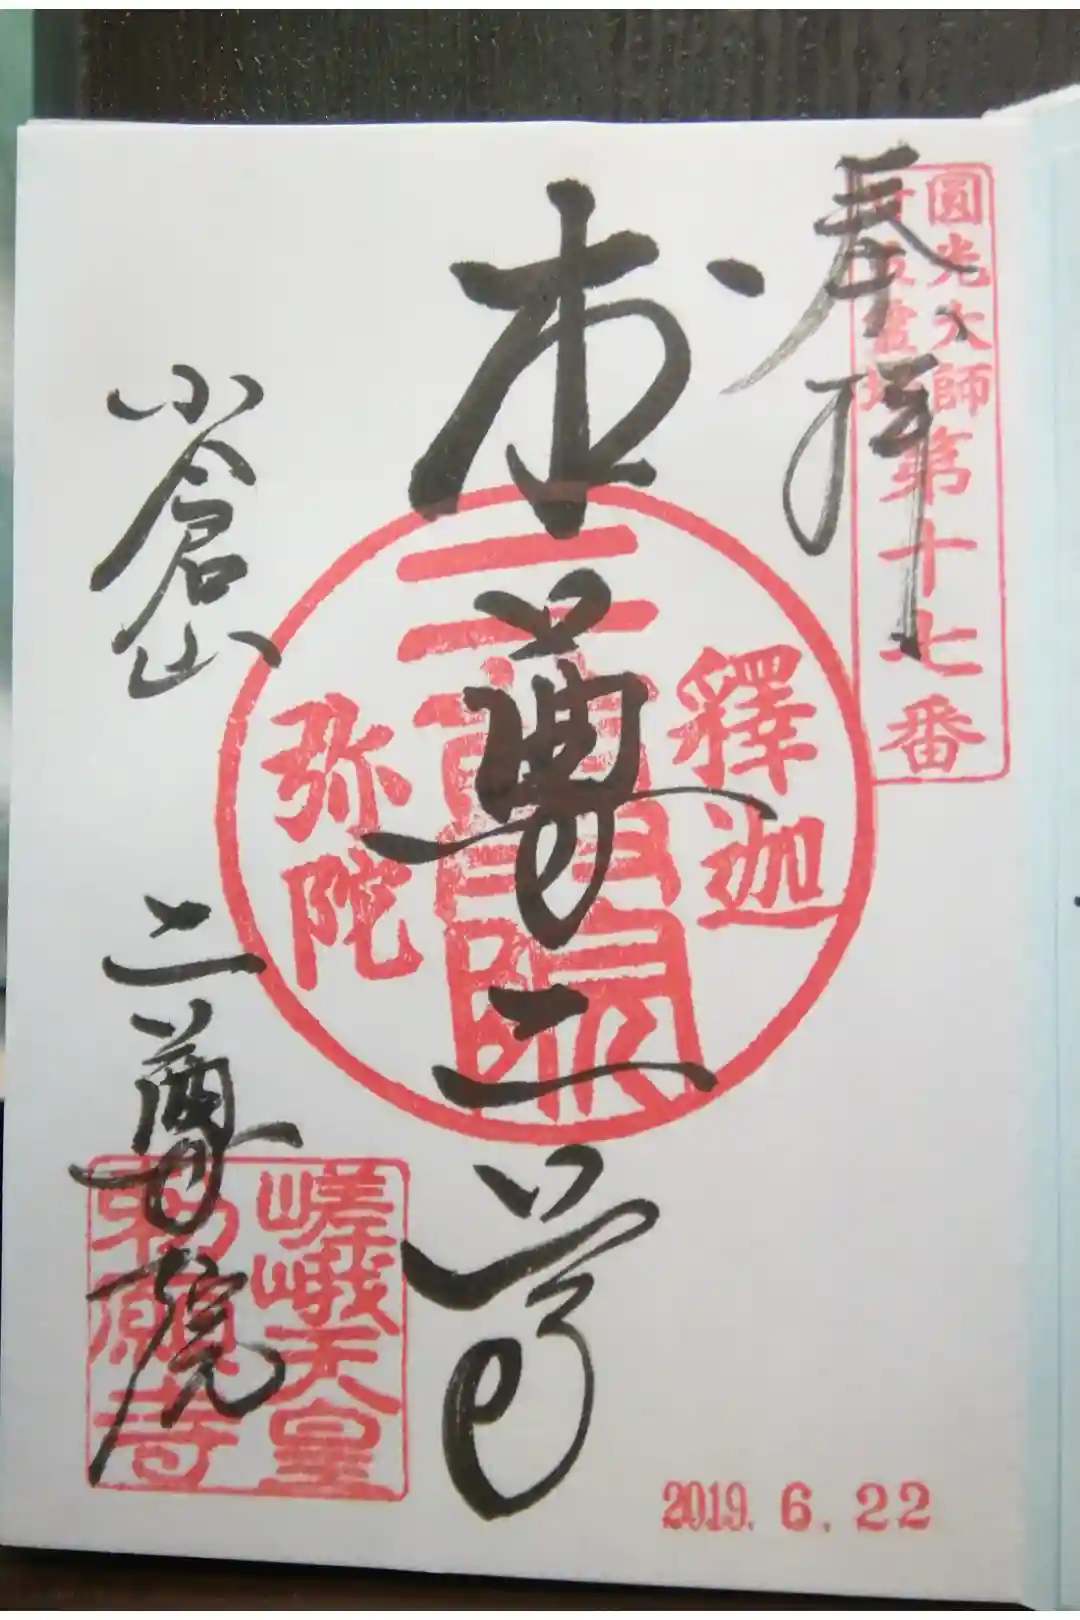 奉拝
圓光大師
廿五霊場
第十七番
本尊二尊
釋迦
二尊院
弥陀
小倉山
二尊院
嵯峨天皇
勅願寺
2019.6.22